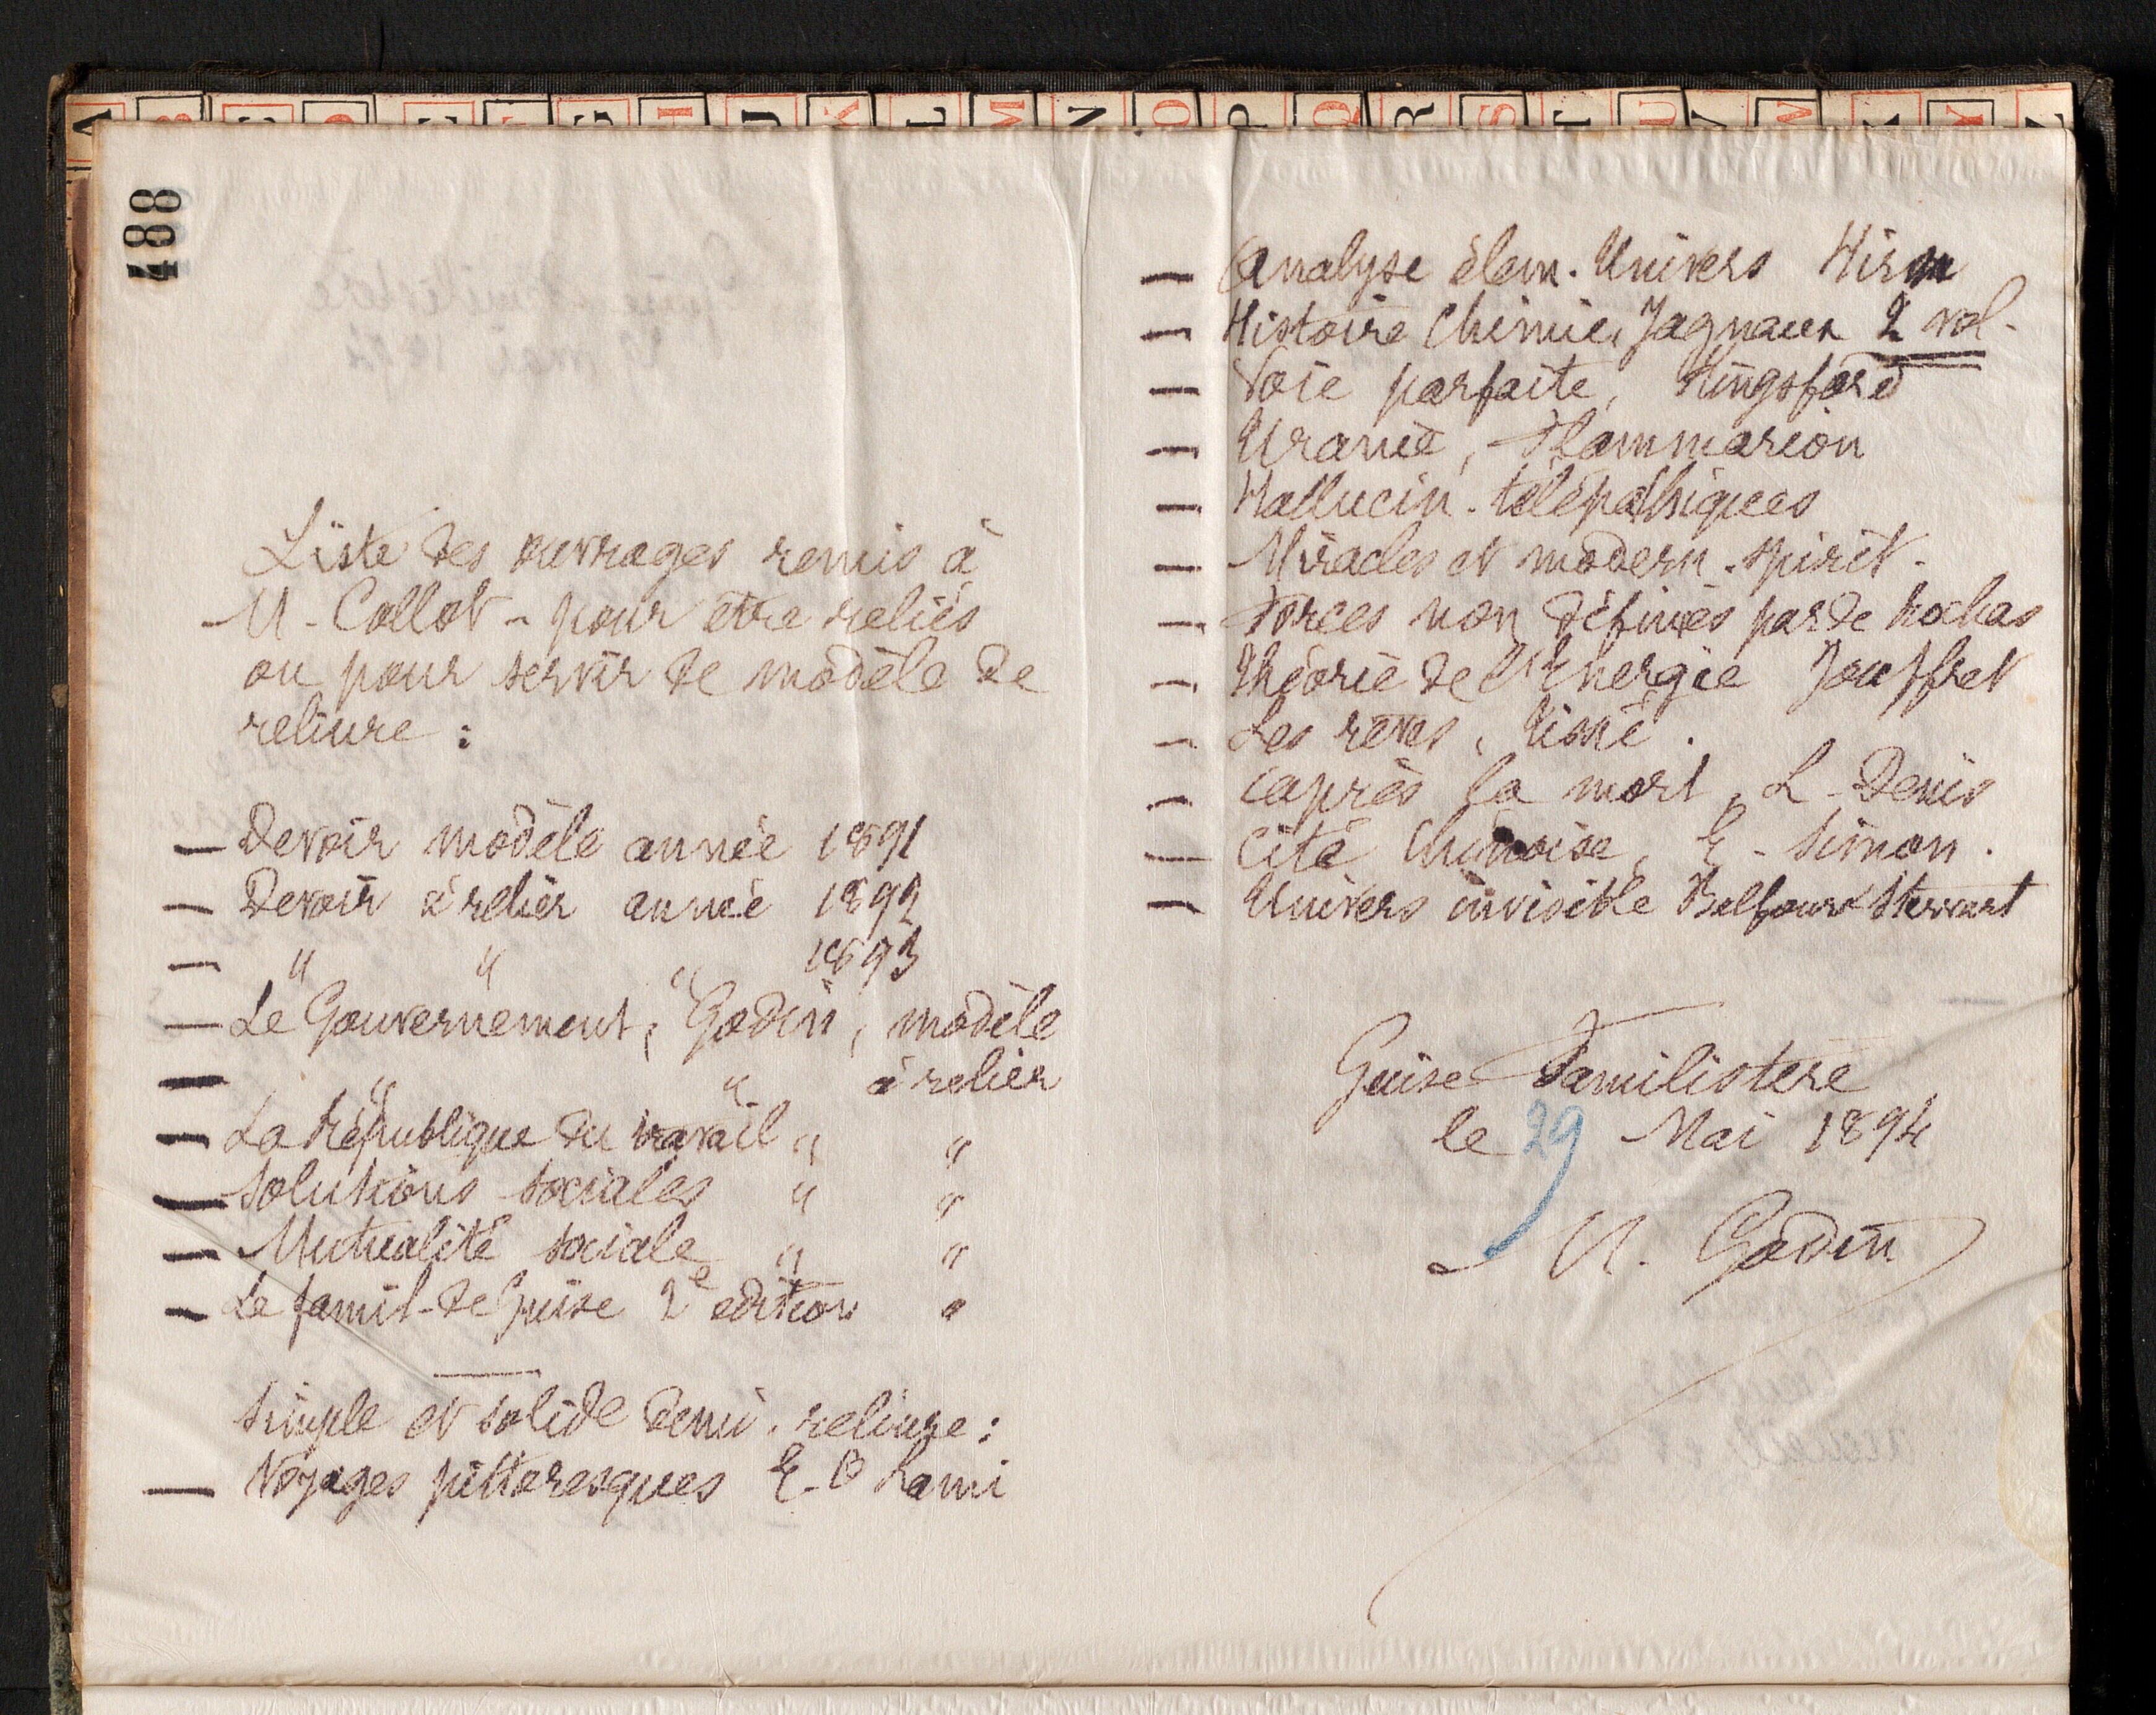 A B C D E F G H I J K L M N O P Q R S T U V W X Y Z
488
Liste des ouvrages remis à
M. Collot - pour être reliés
ou pour servir de modèle de
reliure :
— Devoir modèle année 1891
— Devoir à relier année 1892
— " " " 1893
— Le Gouvernement, Godin, modèle
— " " à relier
— La République du travail " "
— Solutions sociales " "
— Mutualité sociale " "
— Le famil. de Guise 2e edition "
Simple et solide demi-reliure :
— Voyages pittoresques E. O Lami
— Analyse élem. Univers Hirn
— Histoire Chimie, Jagnaux 2 vol.
— Voie parfaite, Kingsford
— Uranie, Flammarion
— Hallucin. télépathiques
— Miracles et modern. spirit.
— Forces non définies par de Rochas
— Théorie de l'Energie Jouffret
— Les rêves, Tissié.
— Après la mort, L. Denis
— Cité Chinoise, E. Simon.
— Univers invisible Belfour Stewart
Guise Familistère
le 29 Mai 1894
M. Godin